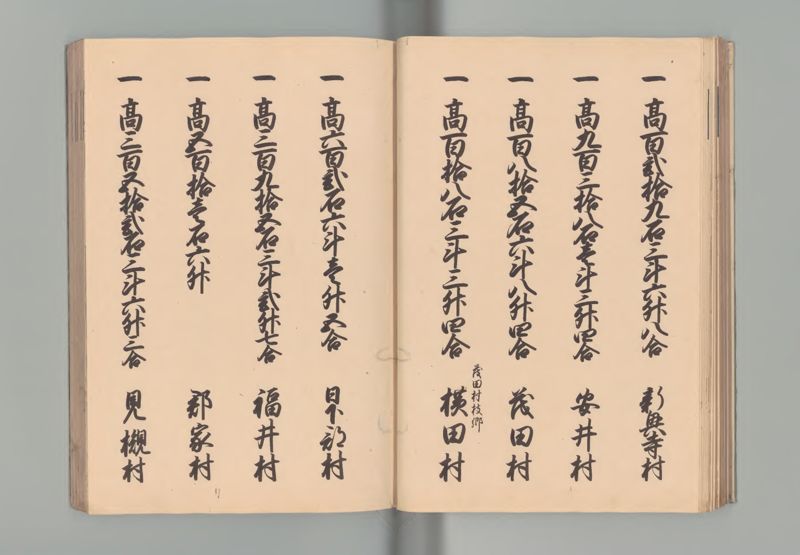 一 高百弐拾九石三斗六升八合 新興寺村
一 高九百三拾八石壱斗三升四合 安井村
一 高百八拾五石六斗八升四合 茂田村
茂田村枝郷
一 高百拾八石三斗三升四合 横田村
一 高六百弐石六斗壱升五合 日下部村
一 高三百九拾五石三斗弐升七合 福井村
一 高五百拾壱石六升 郡家村
一 高三百五拾弐石三斗六升三合 見槻村